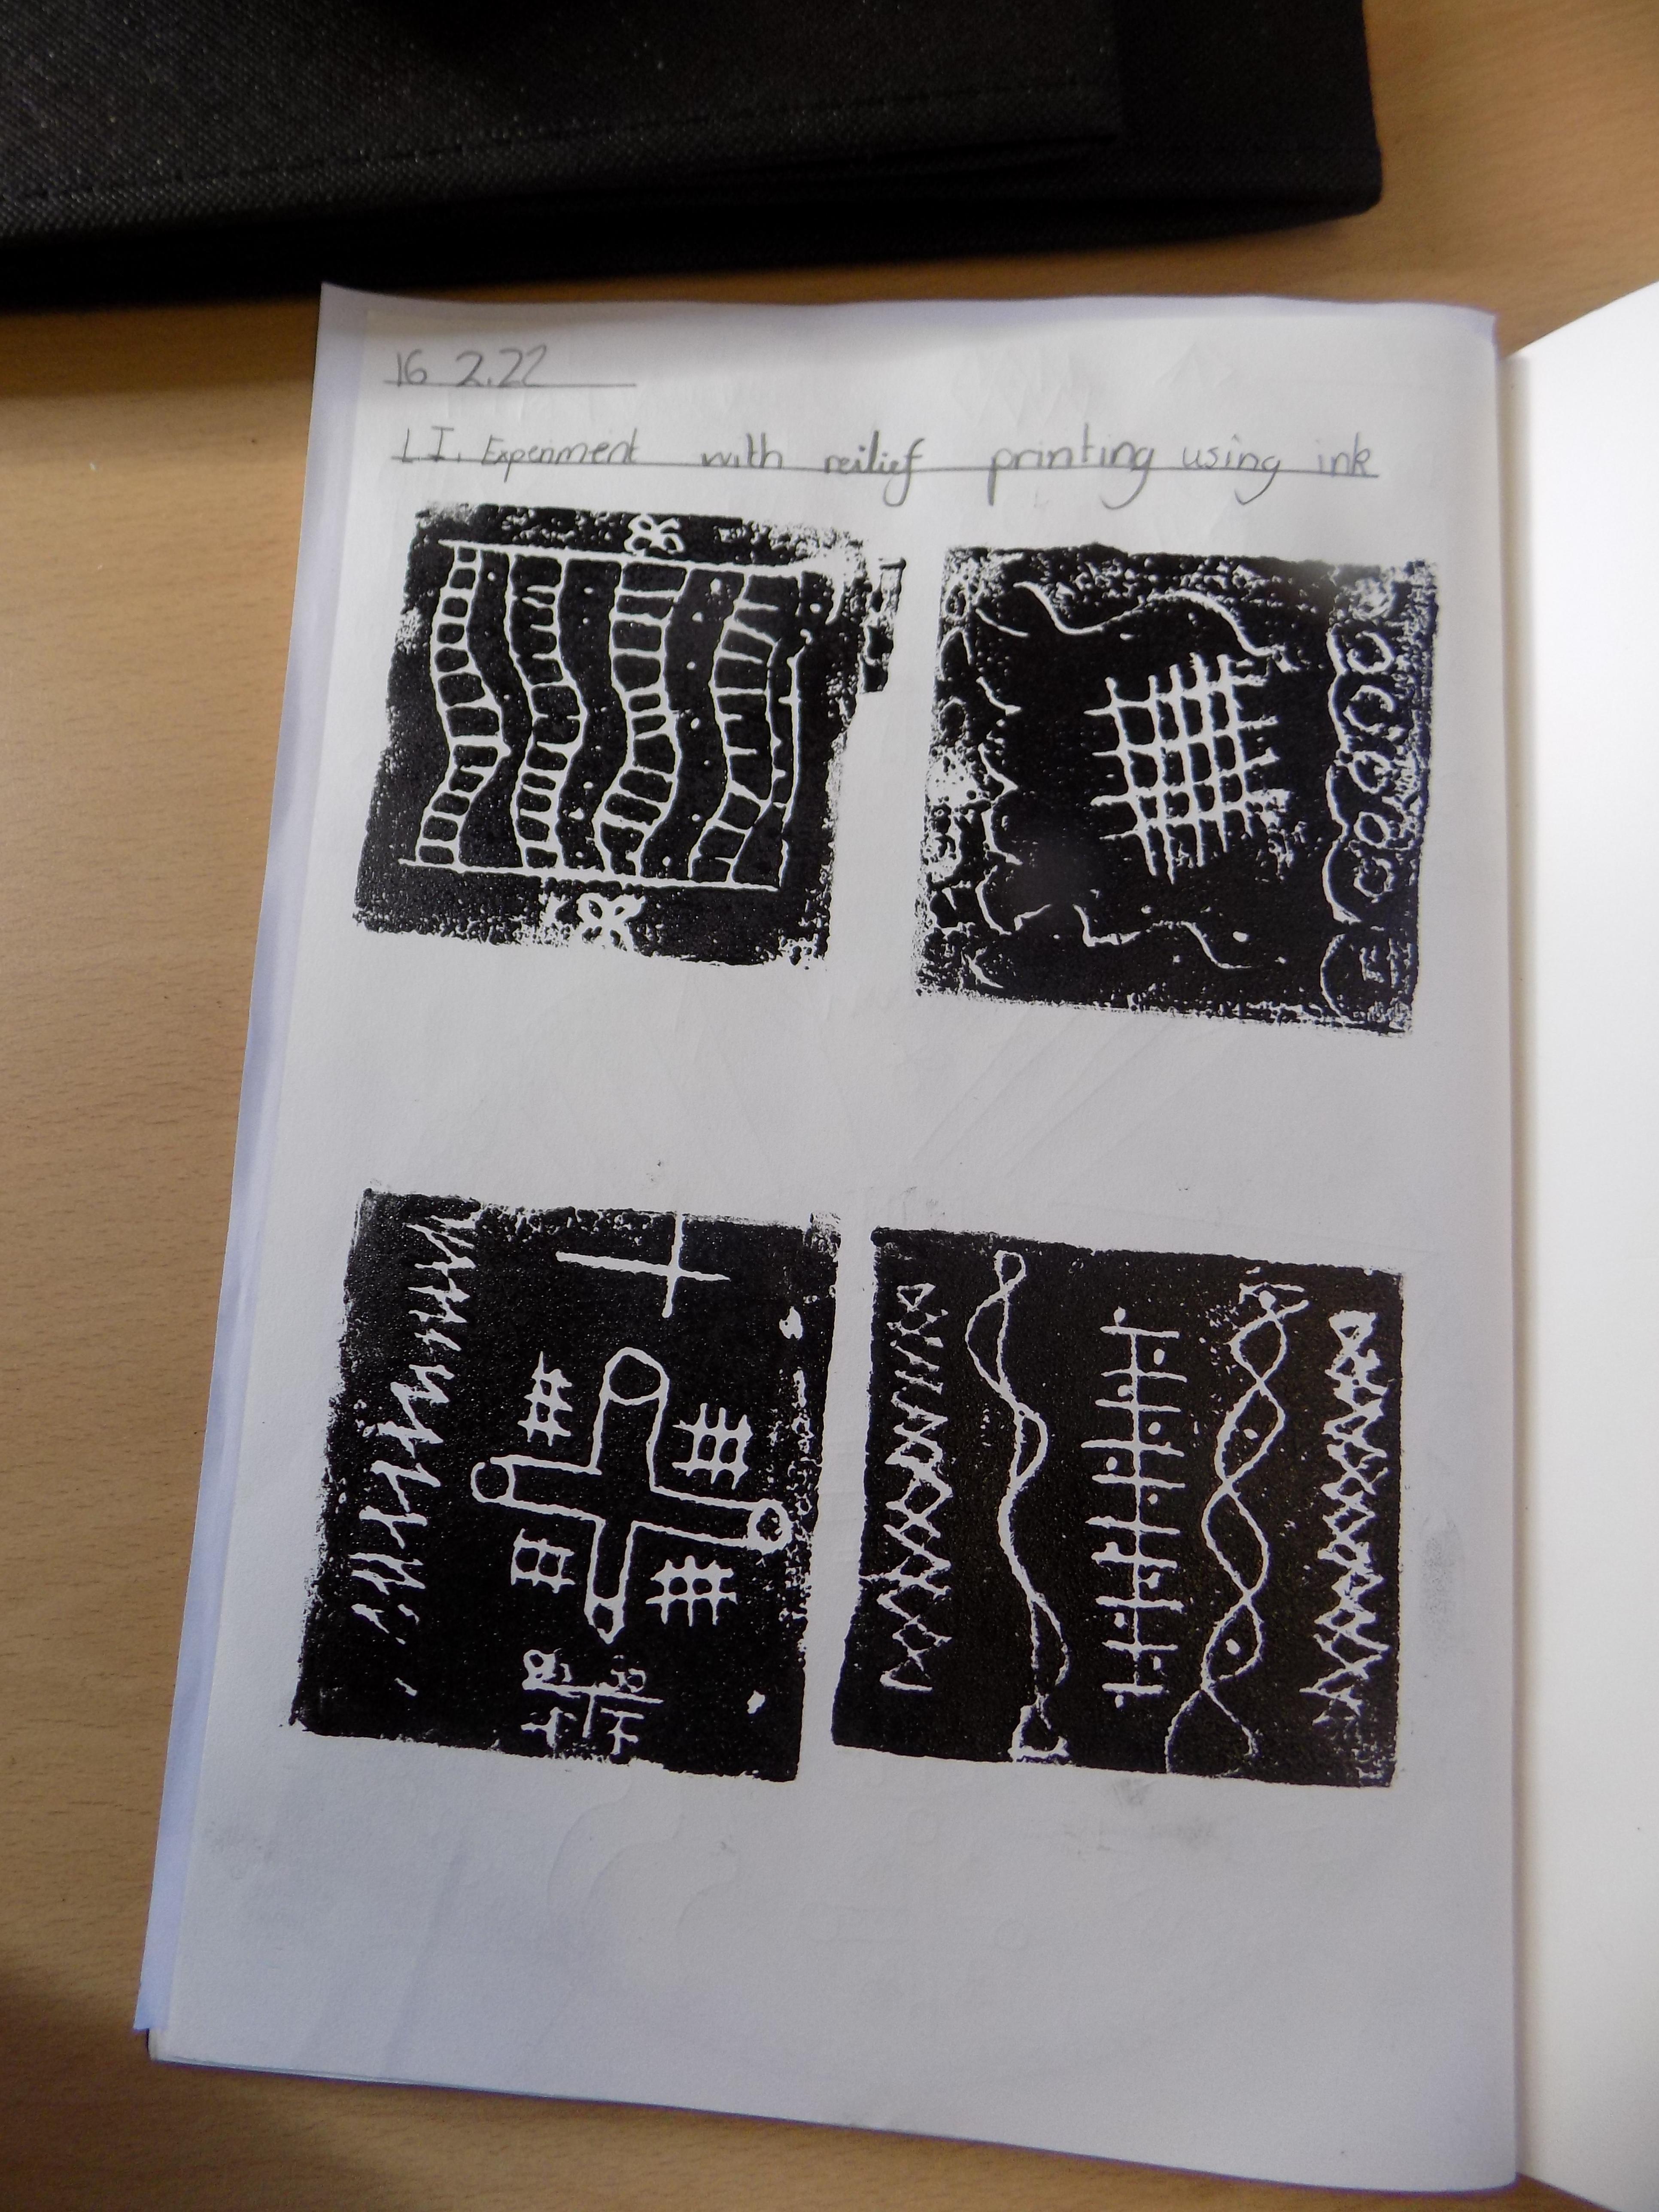 16 2.22
LI. Experiment with reilief printing using ink